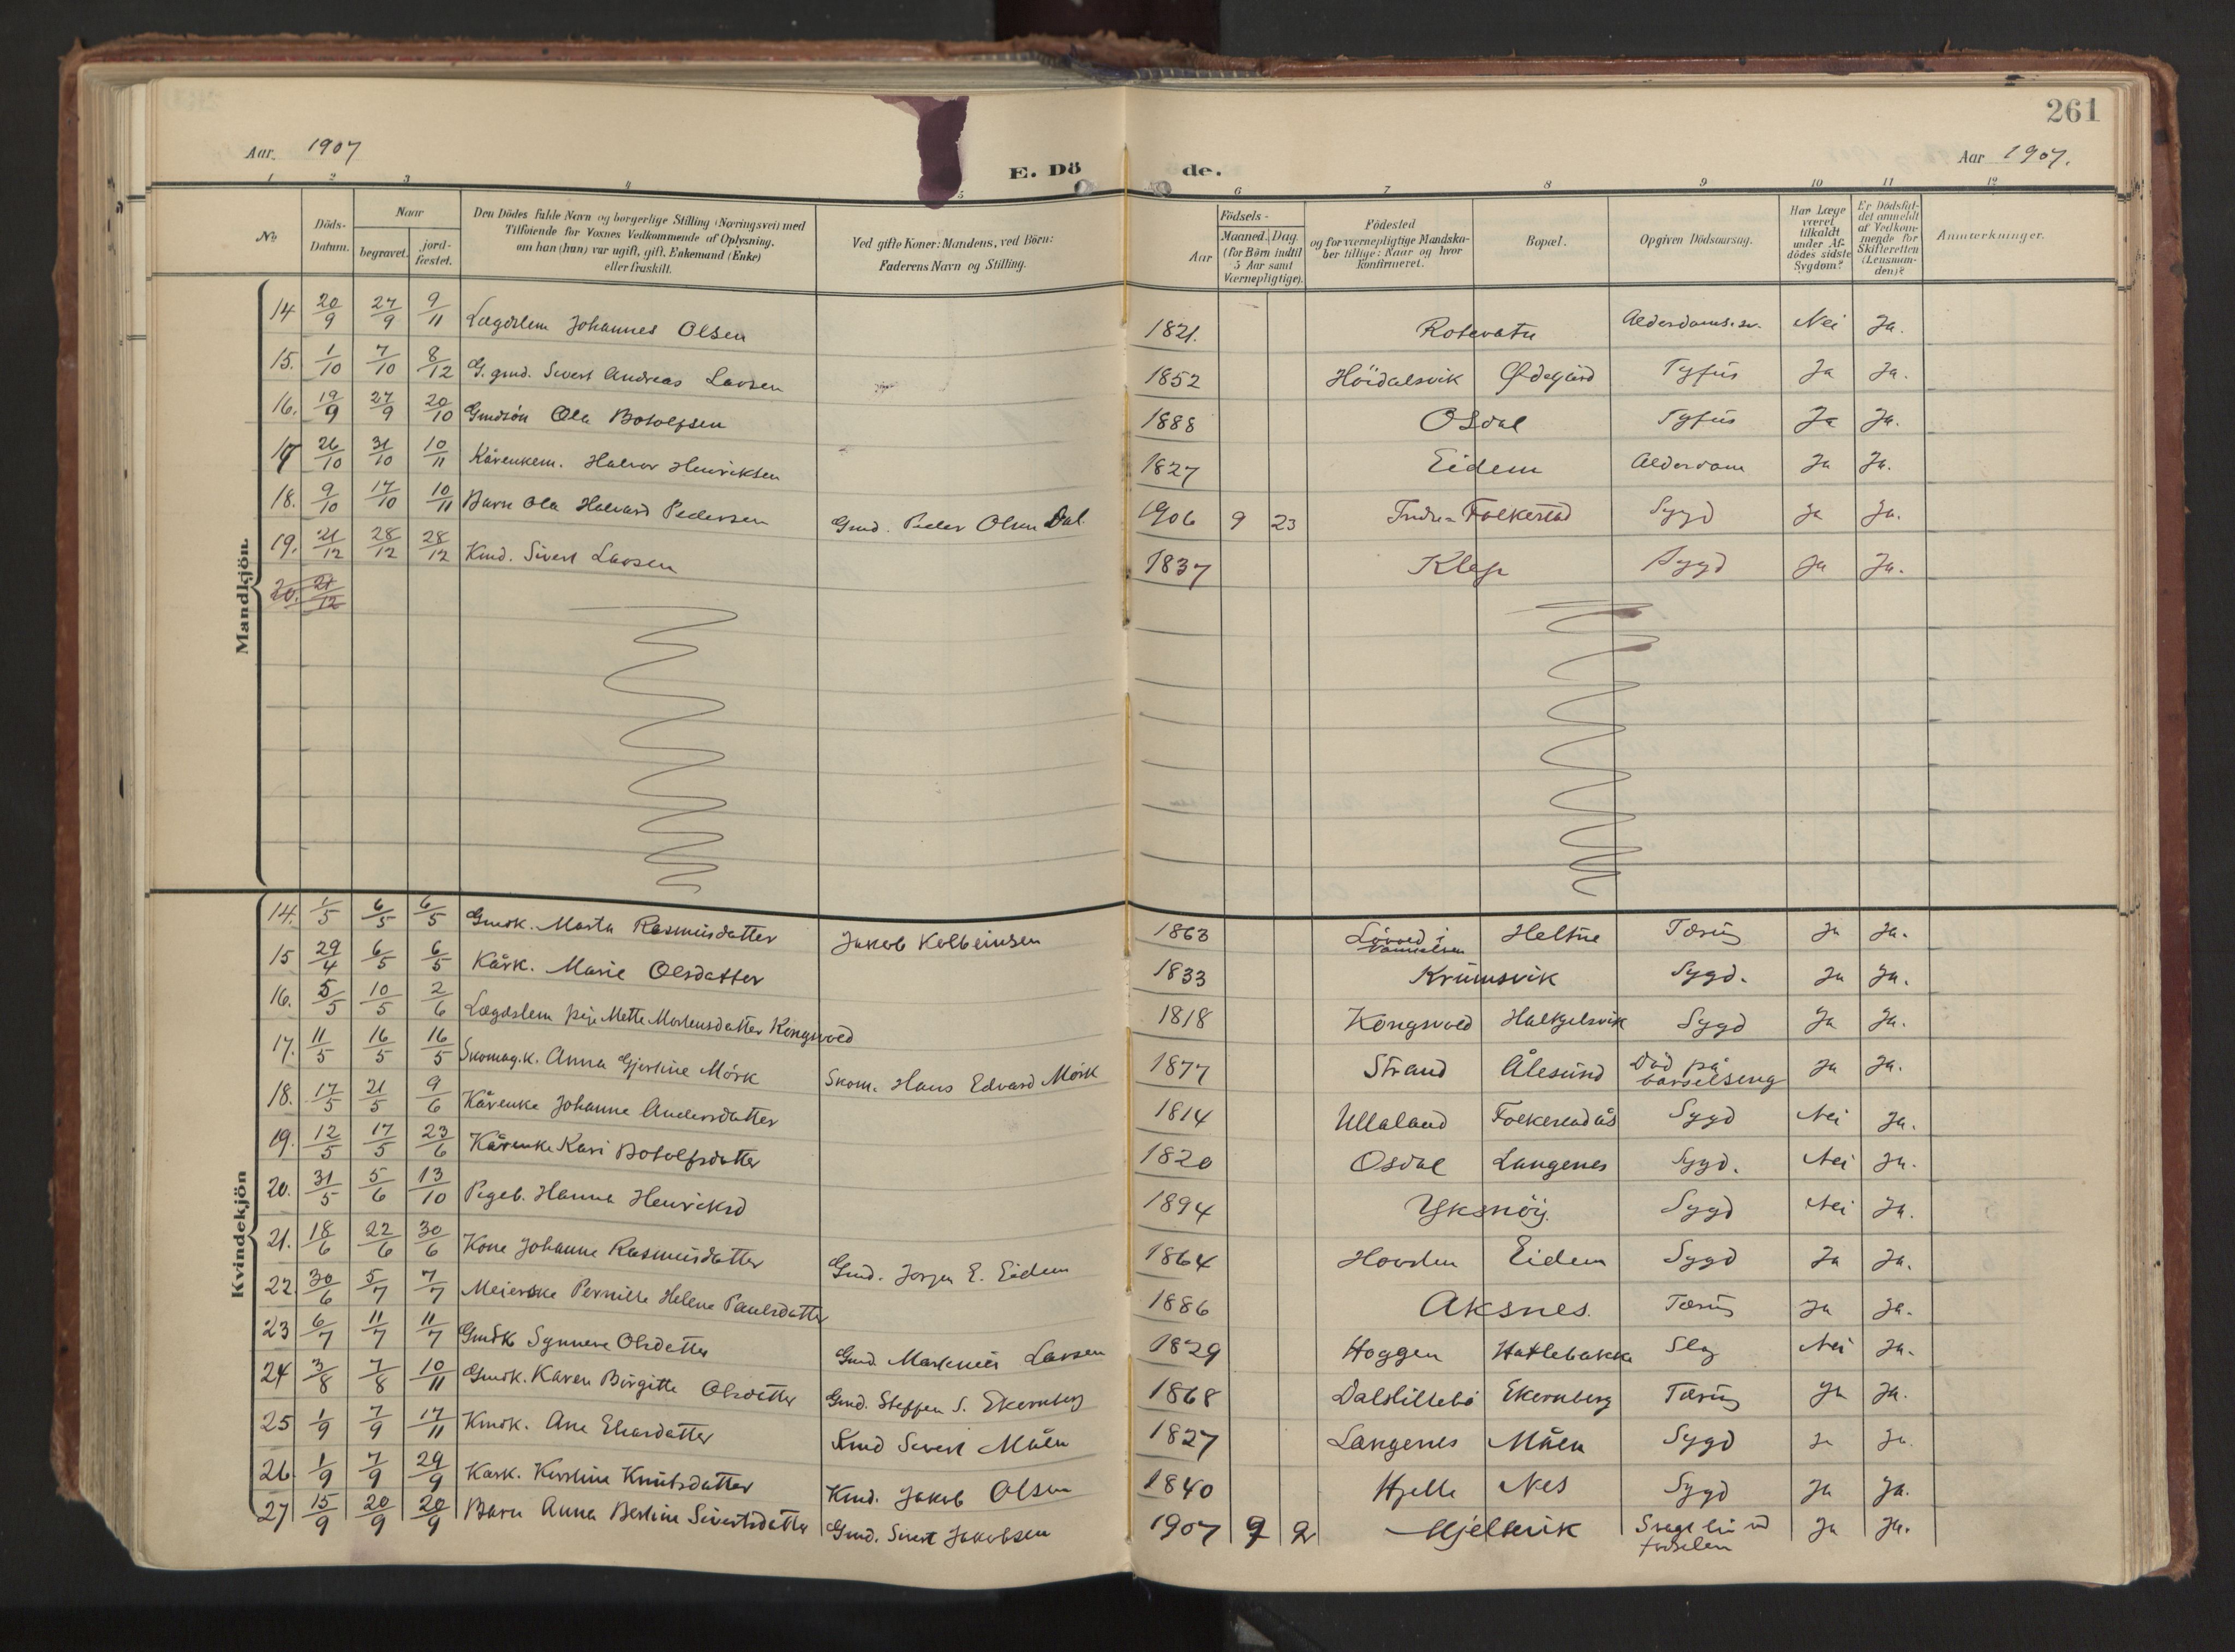 261
Aar. 1907
E. Dö
de.
Aar 1907.
1 2 3 4 5 6 7 8 9 10 11 12
No
Döds-Datum.
Naar
begravet.
jord-fæstet.
Den Dödes fulde Navn og borgerlige Stilling (Næringsvei) med
Tilföiende for Voxnes Vedkommende af Oplysning,
om han (hun) var ugift, gift, Enkemand (Enke)
eller fraskilt.
Ved gifte Koner: Mandens, ved Börn:
Faderens Navn og Stilling.
Födsels-
Aar
Maaned. Dag.
(for Börn indtil
5 Aar samt
Værnepligtige).
Födested
og for værnepligtige Mandska-
ber tillige: Naar og hvor
konfirmeret.
Bopæl.
Opgiven Dödsaarsag.
Har Læge
været
tilkaldt
under Af-
dödes sidste
Sygdom?
Er Dödsfal-
det anmeldt
af Vedkom-
mende for
Skifteretten
(Lensman-
den)?
Anmærkninger.
Mandkjön.
14 20/9 27/9 9/11 Lægdslem Johannes Olsen 1821. Rotevatn Alderdoms.sv. Nei Ja.
15. 1/10 7/10 8/12 G.gmd. Sivert Andreas Larsen 1852 Höidalsvik Ødegård Tyfus Ja Ja.
16. 19/9 27/9 20/10 Gmdsön Ola Botolfsen 1888 Osdal Tyfus Ja Ja.
17 26/10 31/10 10/11 Kårenkem. Halvor Henriksen 1827 Eidem Alderdom Ja Ja.
18. 9/10 17/10 10/11 Barn Ola Halvard Pedersen Gmd. Peder Olsen Dal. 1906 9 23 Indre-Folkestad Sygd Ja Ja.
19. 21/12 28/12 28/12 Kmd. Sivert Larsen 1837 Klep Sygd Ja Ja.
20. 21/12
Kvindekjön
14. 1/5 6/5 6/5 Gmdk. Marta Rasmusdatter Jakob Kolbeinsen 1863 Lövoed i Vannelven Heltne Tæring Ja Ja.
15 29/4 6/5 6/5 Kårk. Marie Olsdatter 1833 Krumsvik Sygd. Ja Ja.
16. 5/5 10/5 2/6 Lægdslem pige Mette Mortensdatter Kongsvoed 1818 Kongsvoed Halkjelsvik Sygd Ja Ja.
17. 11/5 16/5 16/5 Skomag.k. Anna Gjertine Mörk Skom. Hans Edvard Mörk 1877 Strand Ålesund Död på barselseng Ja Ja.
18. 17/5 21/5 9/6 Kårenke Johanne Andersdatter 1814 Ullaland Folkestadås Sygd Nei Ja.
19. 12/5 17/5 23/6 Kårenke Kari Botolfsdatter 1820 Osdal Langenes Sygd. Nei Ja.
20. 31/5 5/6 13/10 Pigeb. Hanna Henriksd 1894 Yksnöy. Sygd Nei Ja.
21. 18/6 22/6 30/6 Kone Johanne Rasmusdatter Gmd. Jörgen E. Eidem 1864 Hovden Eidem Sygd Ja Ja.
22. 30/6 5/7 7/7 Meierske Pernille Helene Paulsdatter 1886 Aksnes. Tæring Ja Ja.
23 6/7 11/7 11/7 Gmdk Synneve Olsdatter Gmd. Markusen Larsen 1829 Hoggen Hatlebakke Slag Nei Ja.
24 3/8 7/8 10/11 Gmdk. Karen Birgitte Olsdatter Gmd. Steffen S. Ekernberg 1868 Dalslillebö Ekernberg Tæring Ja Ja.
25 1/9 7/9 17/11 Kmdk. Ane Eliasdatter Kmd Sivert Måen 1827 Langenes Måen Sygd Ja Ja.
26. 1/9 7/9 29/9 Kårk. Kirstine Knutsdatter Kmd. Jakob Olsen 1840 Hjelle Nes Sygd Ja Ja.
27 15/9 20/9 20/9 Barn Anna Berline Sivertsdatter Gmd. Sivert Jakobsen 1907 9 2 Mjelkevik Svagt liv ved fødselen Ja Ja.